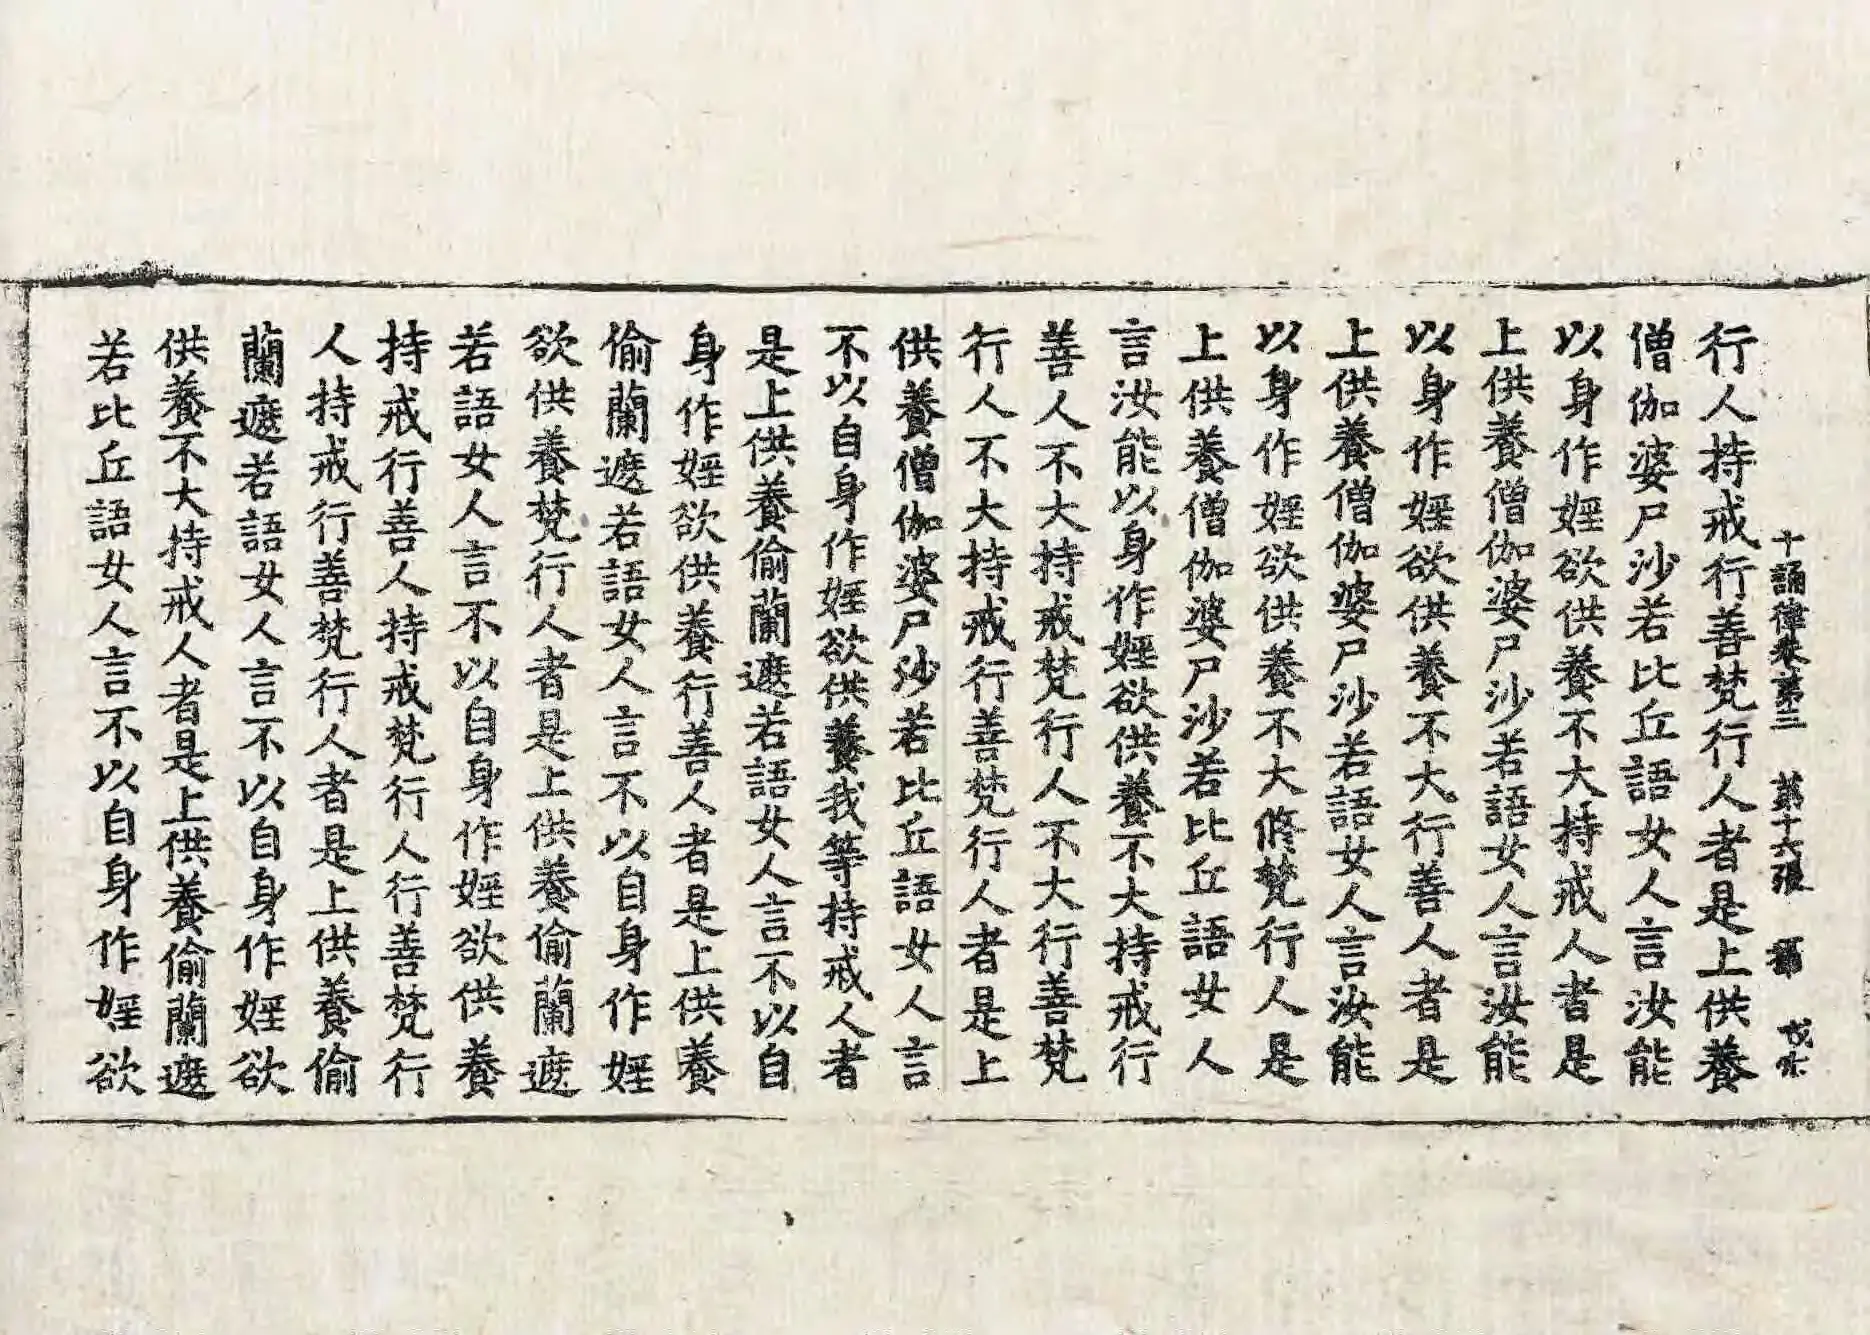 十誦律卷第三　第十六張　攝
行人持戒行善梵行人者是上供養
僧伽婆尸沙若比丘語女人言汝能
以身作婬欲供養不大持戒人者是
上供養僧伽婆尸沙若語女人言汝能
以身作婬欲供養不大行善人者是
上供養僧伽婆尸沙若語女人言汝能
以身作婬欲供養不大脩梵行人是
上供養僧伽婆尸沙若比丘語女人
言汝能以身作婬欲供養不大持戒行
善人不大持戒梵行人不大行善梵
行人不大持戒行善梵行人者是上
供養僧伽婆尸沙若比丘語女人言
不以自身作婬欲供養我等持戒人者
是上供養偷蘭遮若語女人言不以自
身作婬欲供養行善人者是上供養
偷蘭遮若語女人言不以自身作婬
欲供養梵行人者是上供養偷蘭遮
若語女人言不以自身作婬欲供養
持戒行善人持戒梵行人行善梵行
人持戒行善梵行人者是上供養偷
蘭遮若語女人言不以自身作婬欲
供養不大持戒人者是上供養偷蘭遮
若比丘語女人言不以自身作婬欲